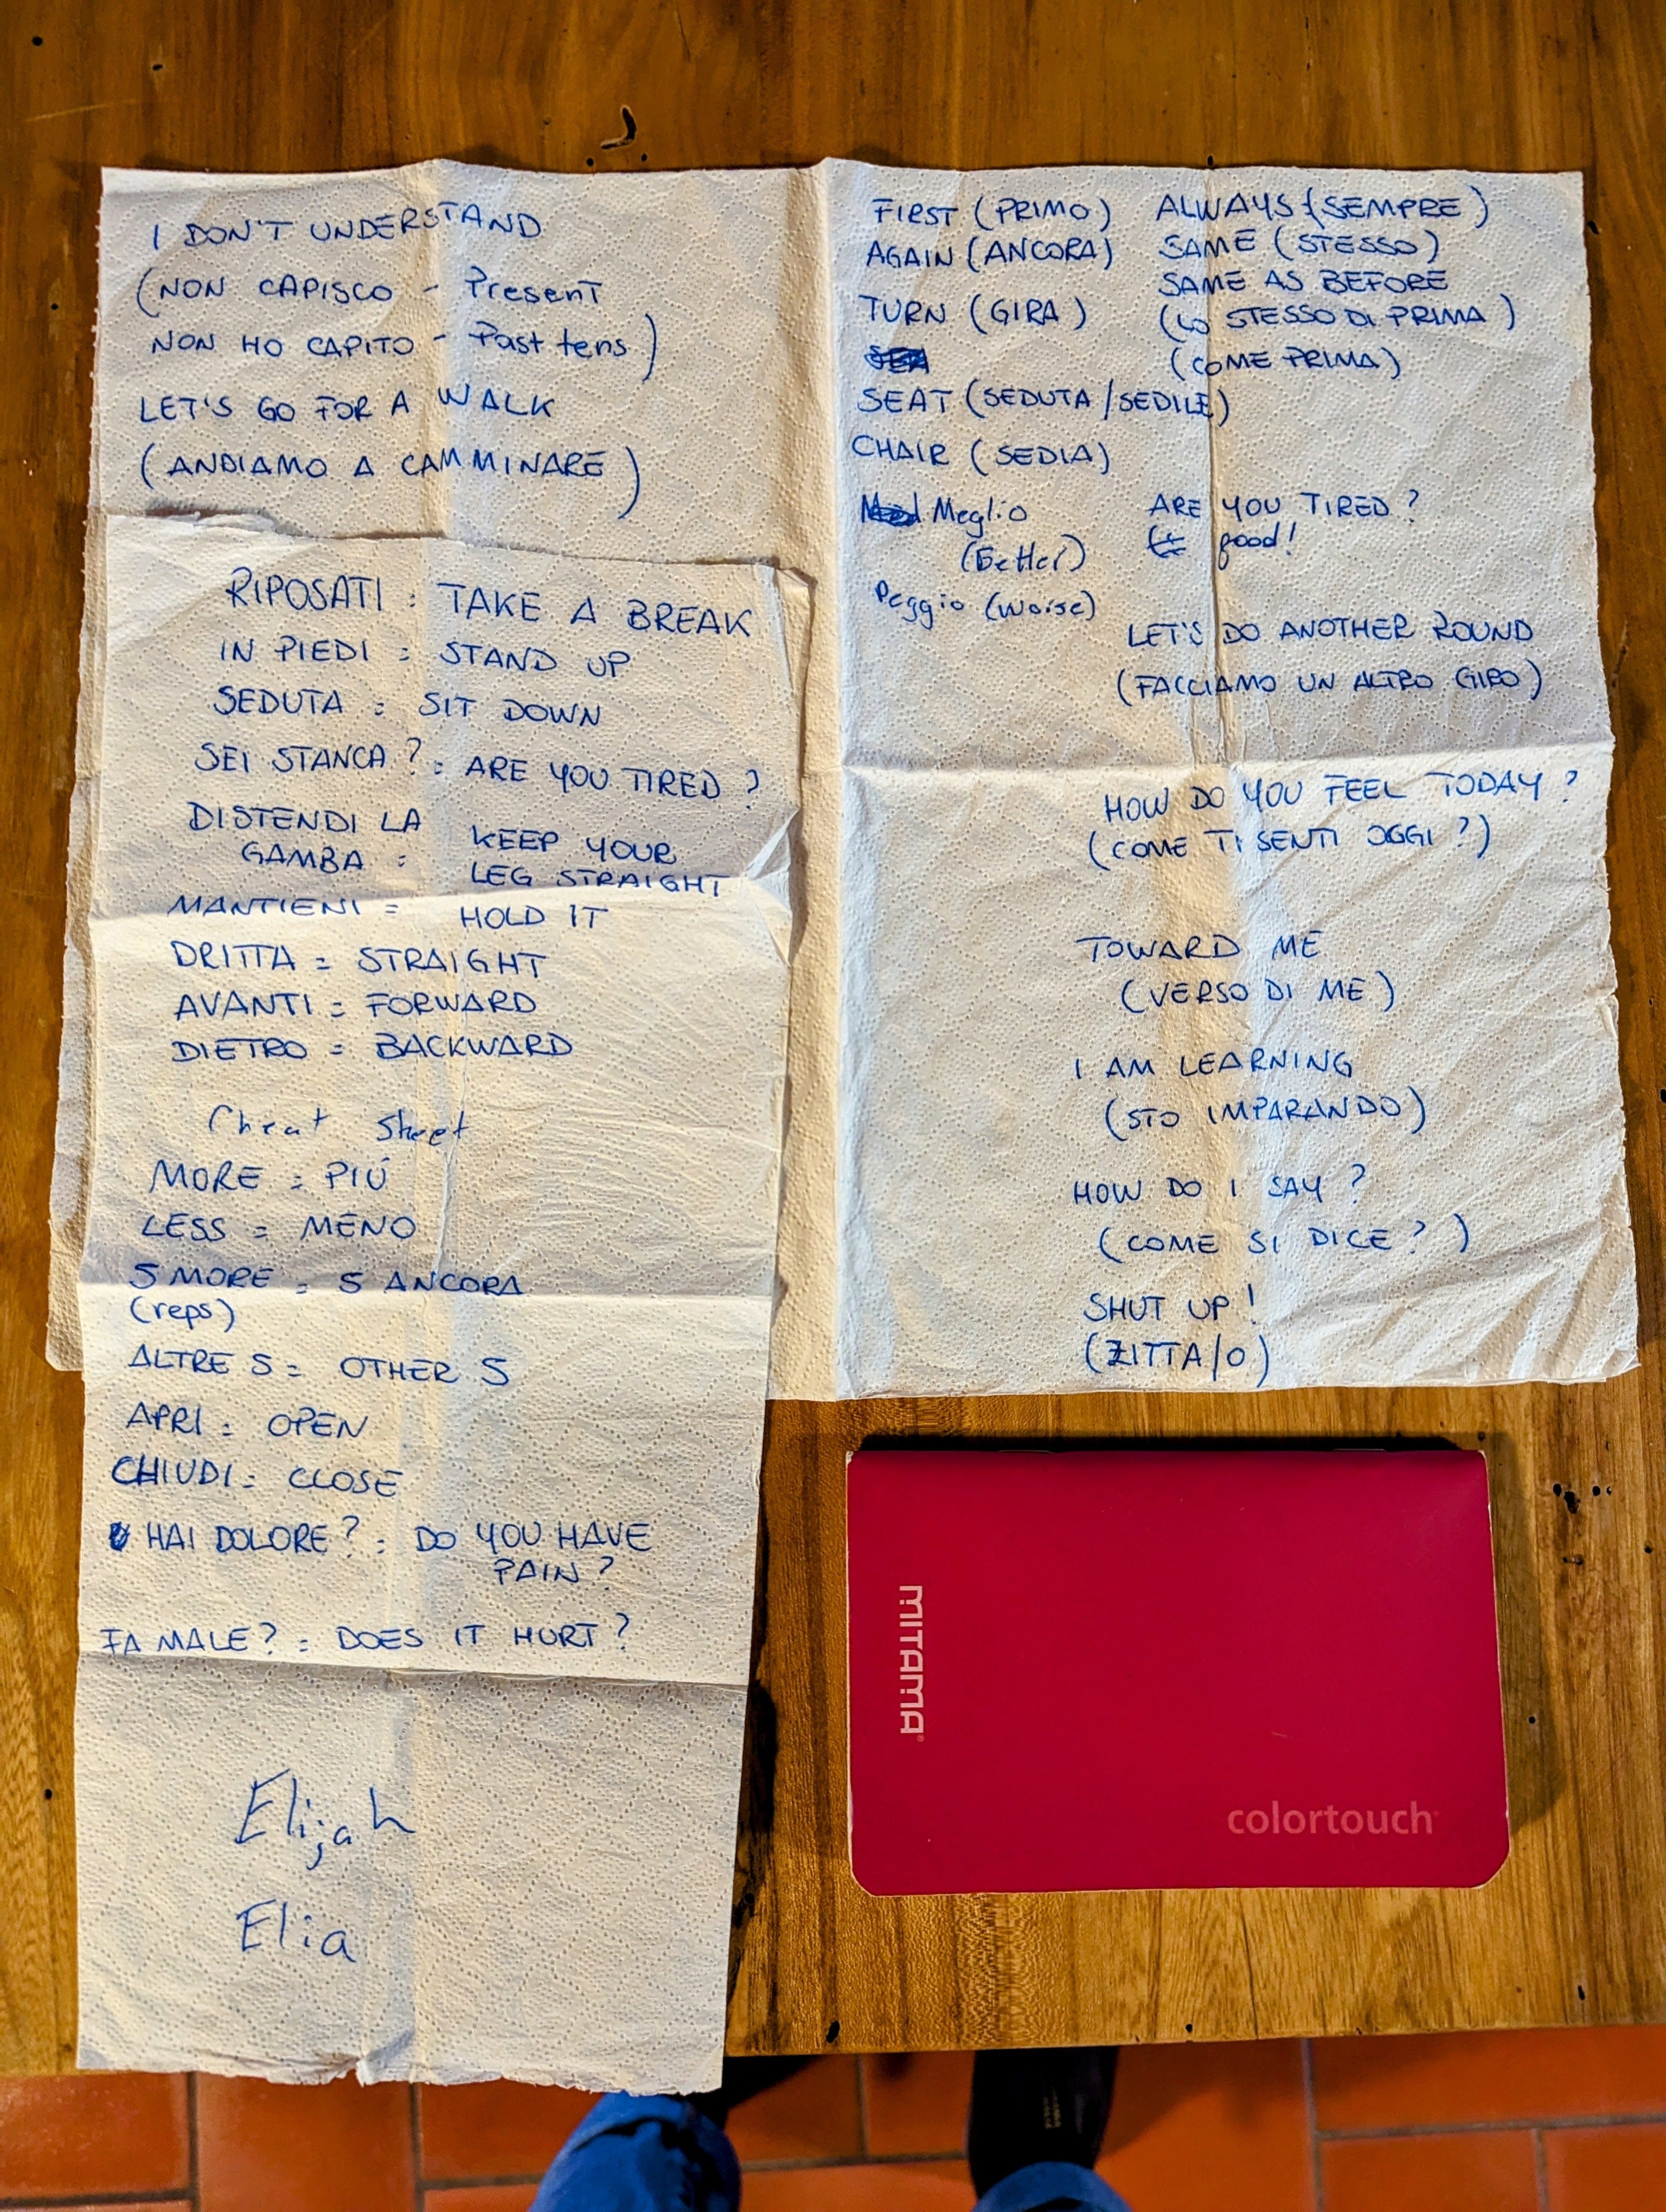 I DON'T UNDERSTAND
(NON CAPISCO - Present
NON HO CAPITO - Past tens)
LET'S GO FOR A WALK
(ANDIAMO A CAMMINARE)
RIPOSATI : TAKE A BREAK
IN PIEDI = STAND UP
SEDUTA = SIT DOWN
SEI STANCA? = ARE YOU TIRED?
DISTENDI LA GAMBA = KEEP YOUR LEG STRAIGHT
MANTIENI = HOLD IT
DRITTA = STRAIGHT
AVANTI = FORWARD
DIETRO = BACKWARD
Cheat Sheet
MORE = PIÚ
LESS = MENO
5 MORE = 5 ANCORA
(reps)
ALTRE 5 = OTHER 5
APRI = OPEN
CHIUDI = CLOSE
HAI DOLORE? = DO YOU HAVE
PAIN?
FA MALE? = DOES IT HURT?
Elijah
Elia
FIRST (PRIMO)
AGAIN (ANCORA)
TURN (GIRA)
SEAT (SEDUTA/SEDILE)
CHAIR (SEDIA)
Meglio
(Better)
Peggio (Worse)
ALWAYS (SEMPRE)
SAME (STESSO)
SAME AS BEFORE
(LO STESSO DI PRIMA)
(COME PRIMA)
ARE YOU TIRED?
good!
LET'S DO ANOTHER ROUND
(FACCIAMO UN ALTRO GIRO)
HOW DO YOU FEEL TODAY?
(COME TI SENTI OGGI?)
TOWARD ME
(VERSO DI ME)
I AM LEARNING
(STO IMPARANDO)
HOW DO I SAY?
(COME SI DICE?)
SHUT UP!
(ZITTA/O)
MITAMA
colortouch